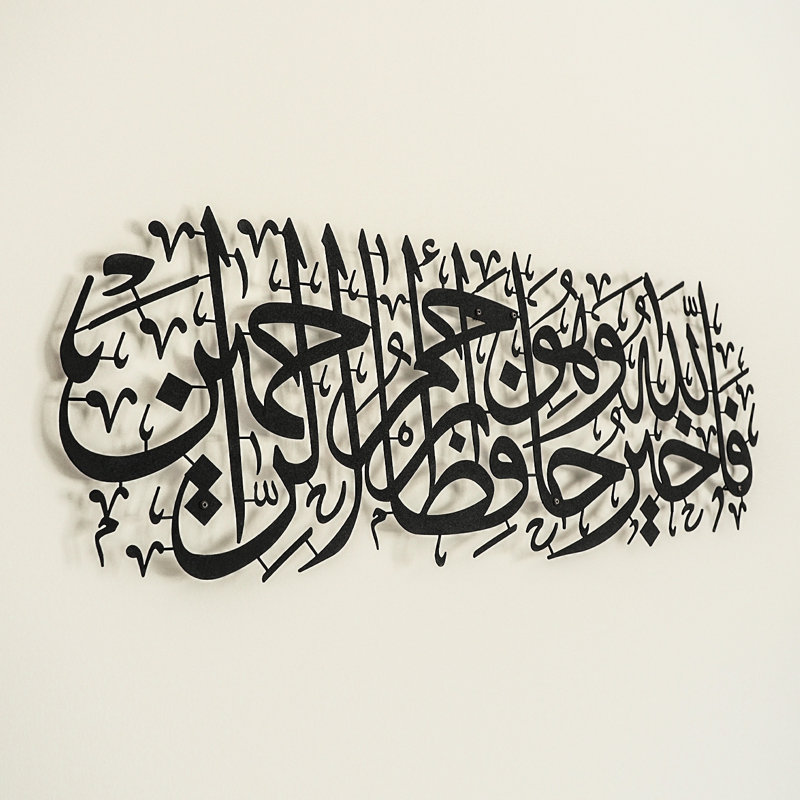 فَاللّٰهُ خَيْرٌ حَافِظًا وَهُوَ أَرْحَمُ الرَّاحِمِينَ